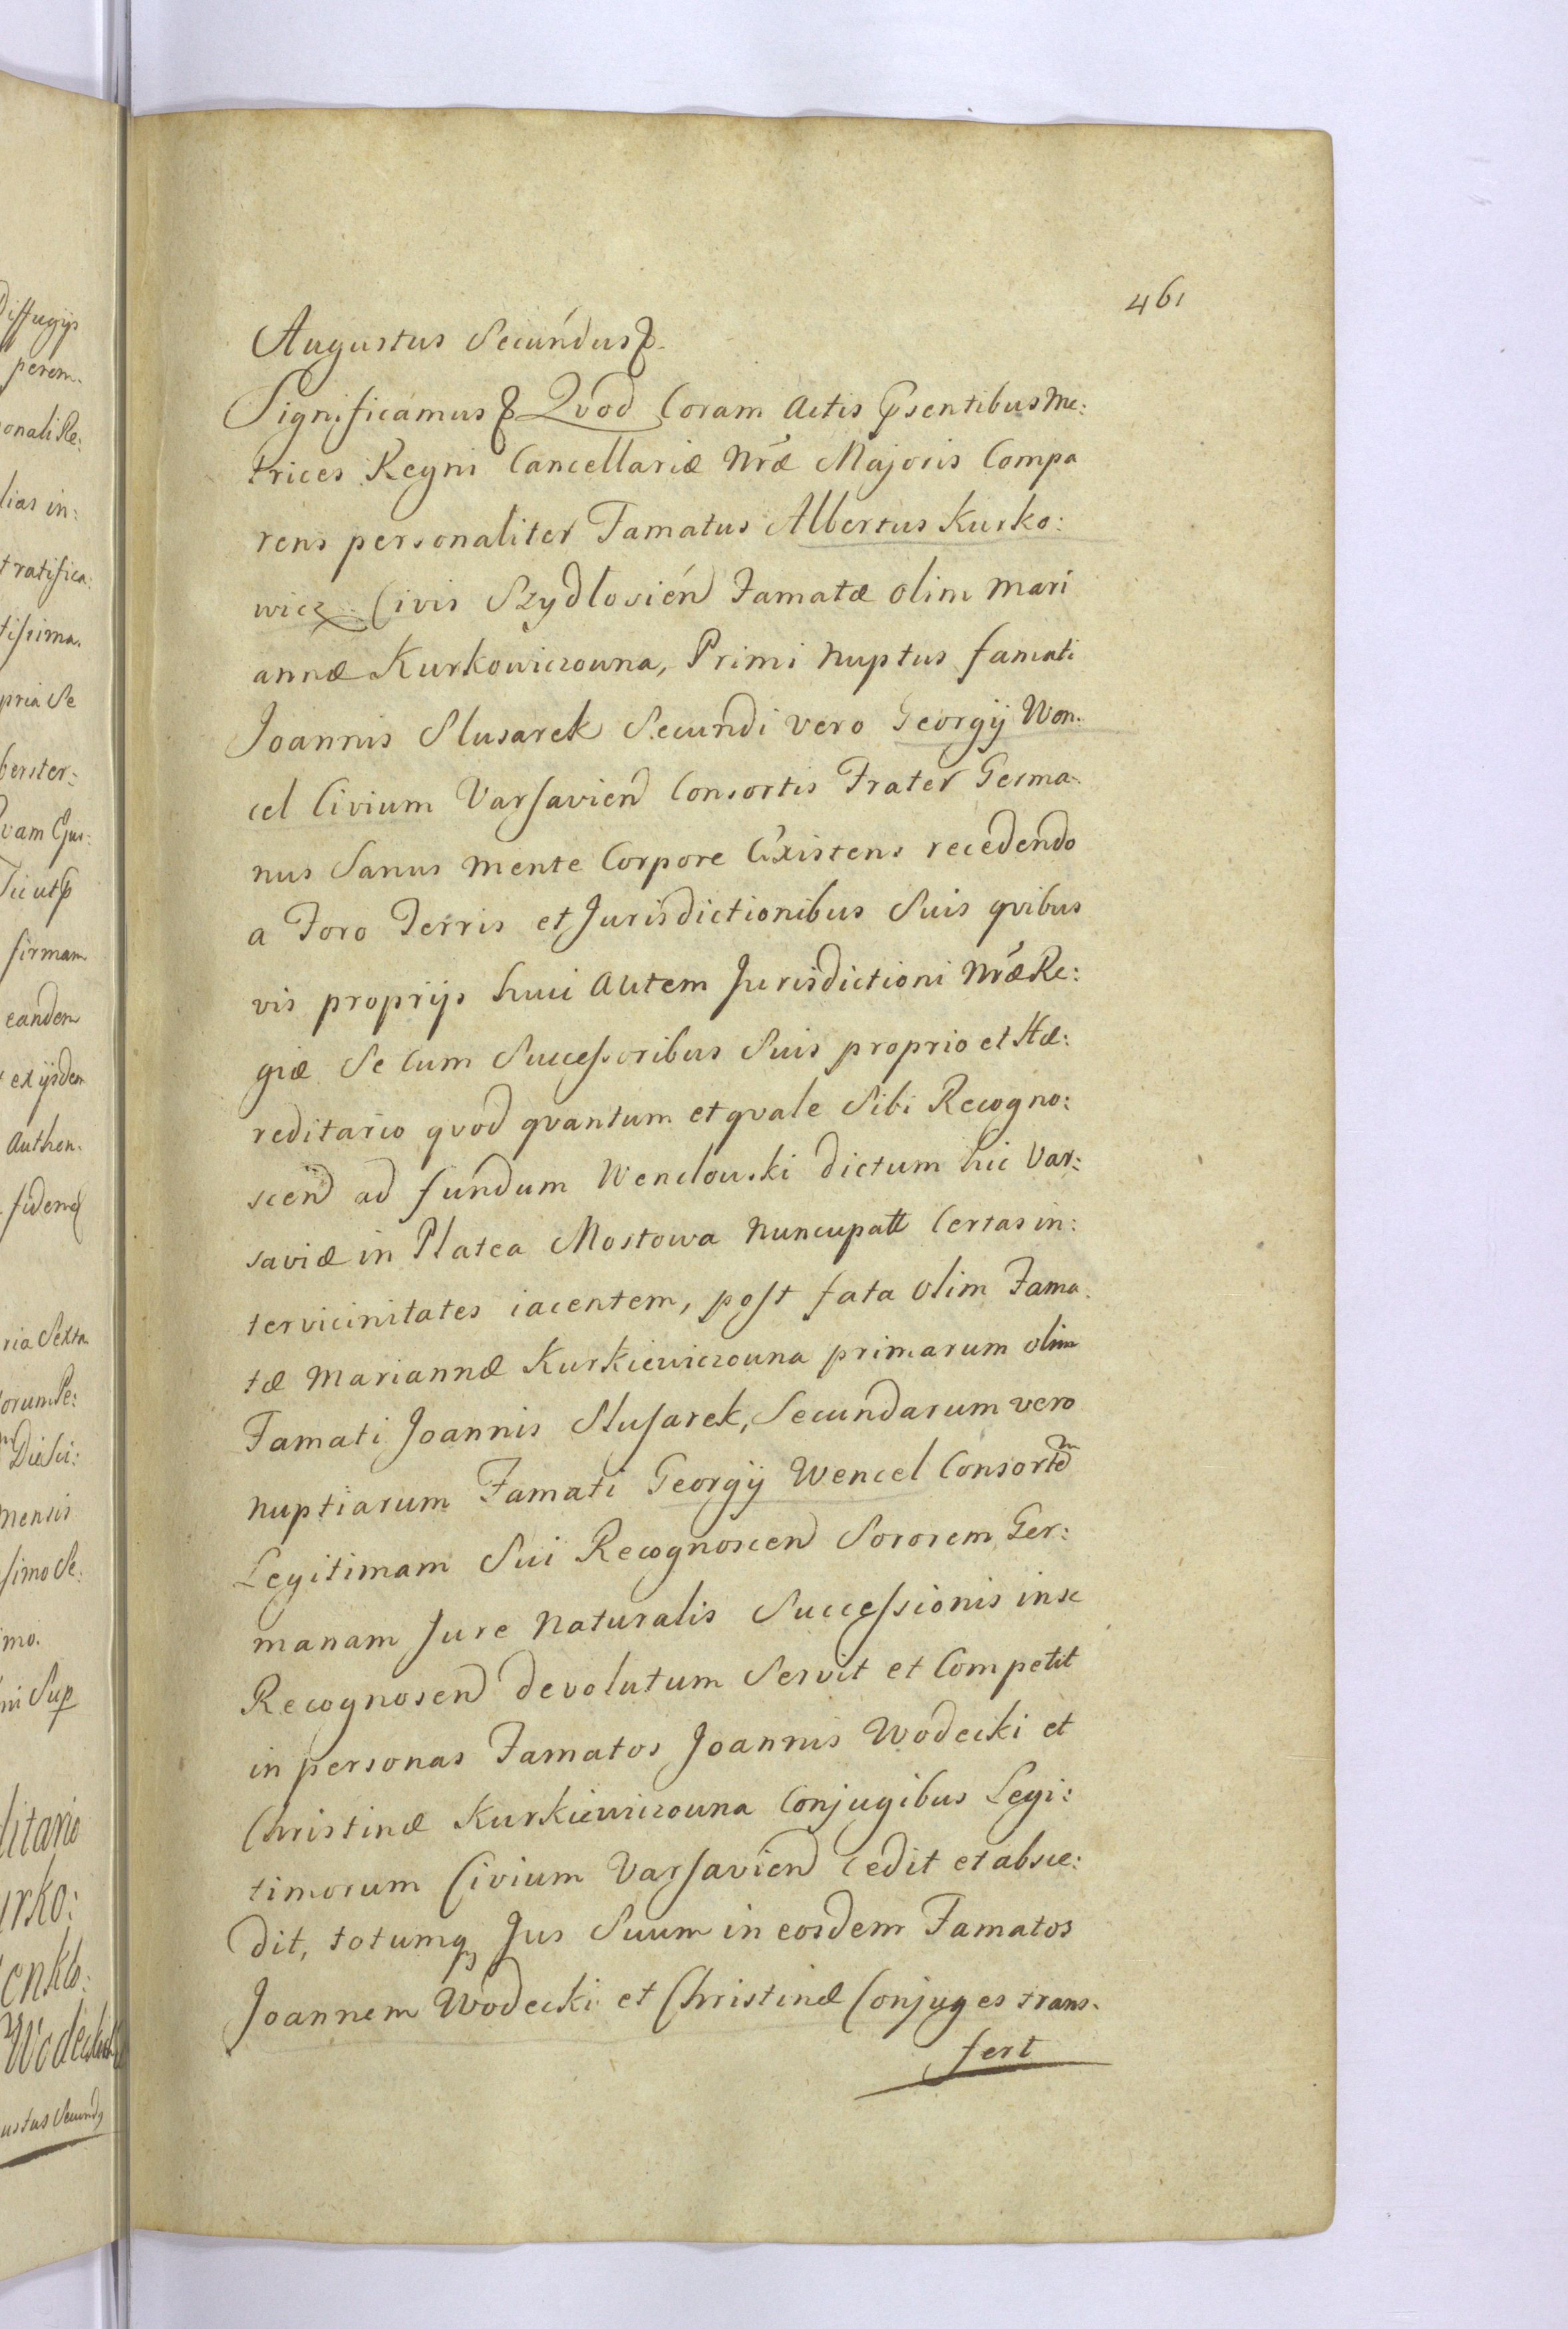 461
Augustus Secúndus
Significamus Qvod Coram Actis Psentibus Me:
trices Regni Cancellariæ Nræ Majoris Compa
rens personaliter Famatus Albertus Kurko:
wicz Civis Szydlovień Famatæ olim Mari
annæ Kurkowiczowna, Primi Nuptus famati
Joannis Slusarek Secundi vero Georgij Wen.
cel Civium Varsavien Consortis Frater Germa.
nus Sanus mente Corpore Existens recedendo
a Foro Terris et Jurisdictionibus Suis qvibus
vis proprijs huic Autem Jurisdictioni Nræ Re:
giæ Se Cum Successoribus Suis proprio et Hæ:
reditario qvod qvantum et qvale Sibi Recogno:
scen ad fundum Wenclowski dictum hic Var:
saviæ in Platea Mostowa Nuncupatt Certas in:
tervicinitates iacentem, post fata olim Fama.
tæ Mariannæ Kurkiewiczowna primarum olim
Famati Joannis Slusarek, Secundarum vero
nuptiarum Famati Georgij Wencel Consortem
Legitimam Sui Recognoscen Sororem Ger:
manam Jure Naturalis Successionis in se
Recognoscen devolutum Servit et Competit
in personas Famatos Joannis Wodecki et
Christinæ Kurkiewiczowna Conjugibus Legi:
timorum Civium Varsavien Cedit et absce:
dit, totumq Jus Suum in eosdem Famatos
Joannem Wodecki et Christinæ Conjuges trans.
fert